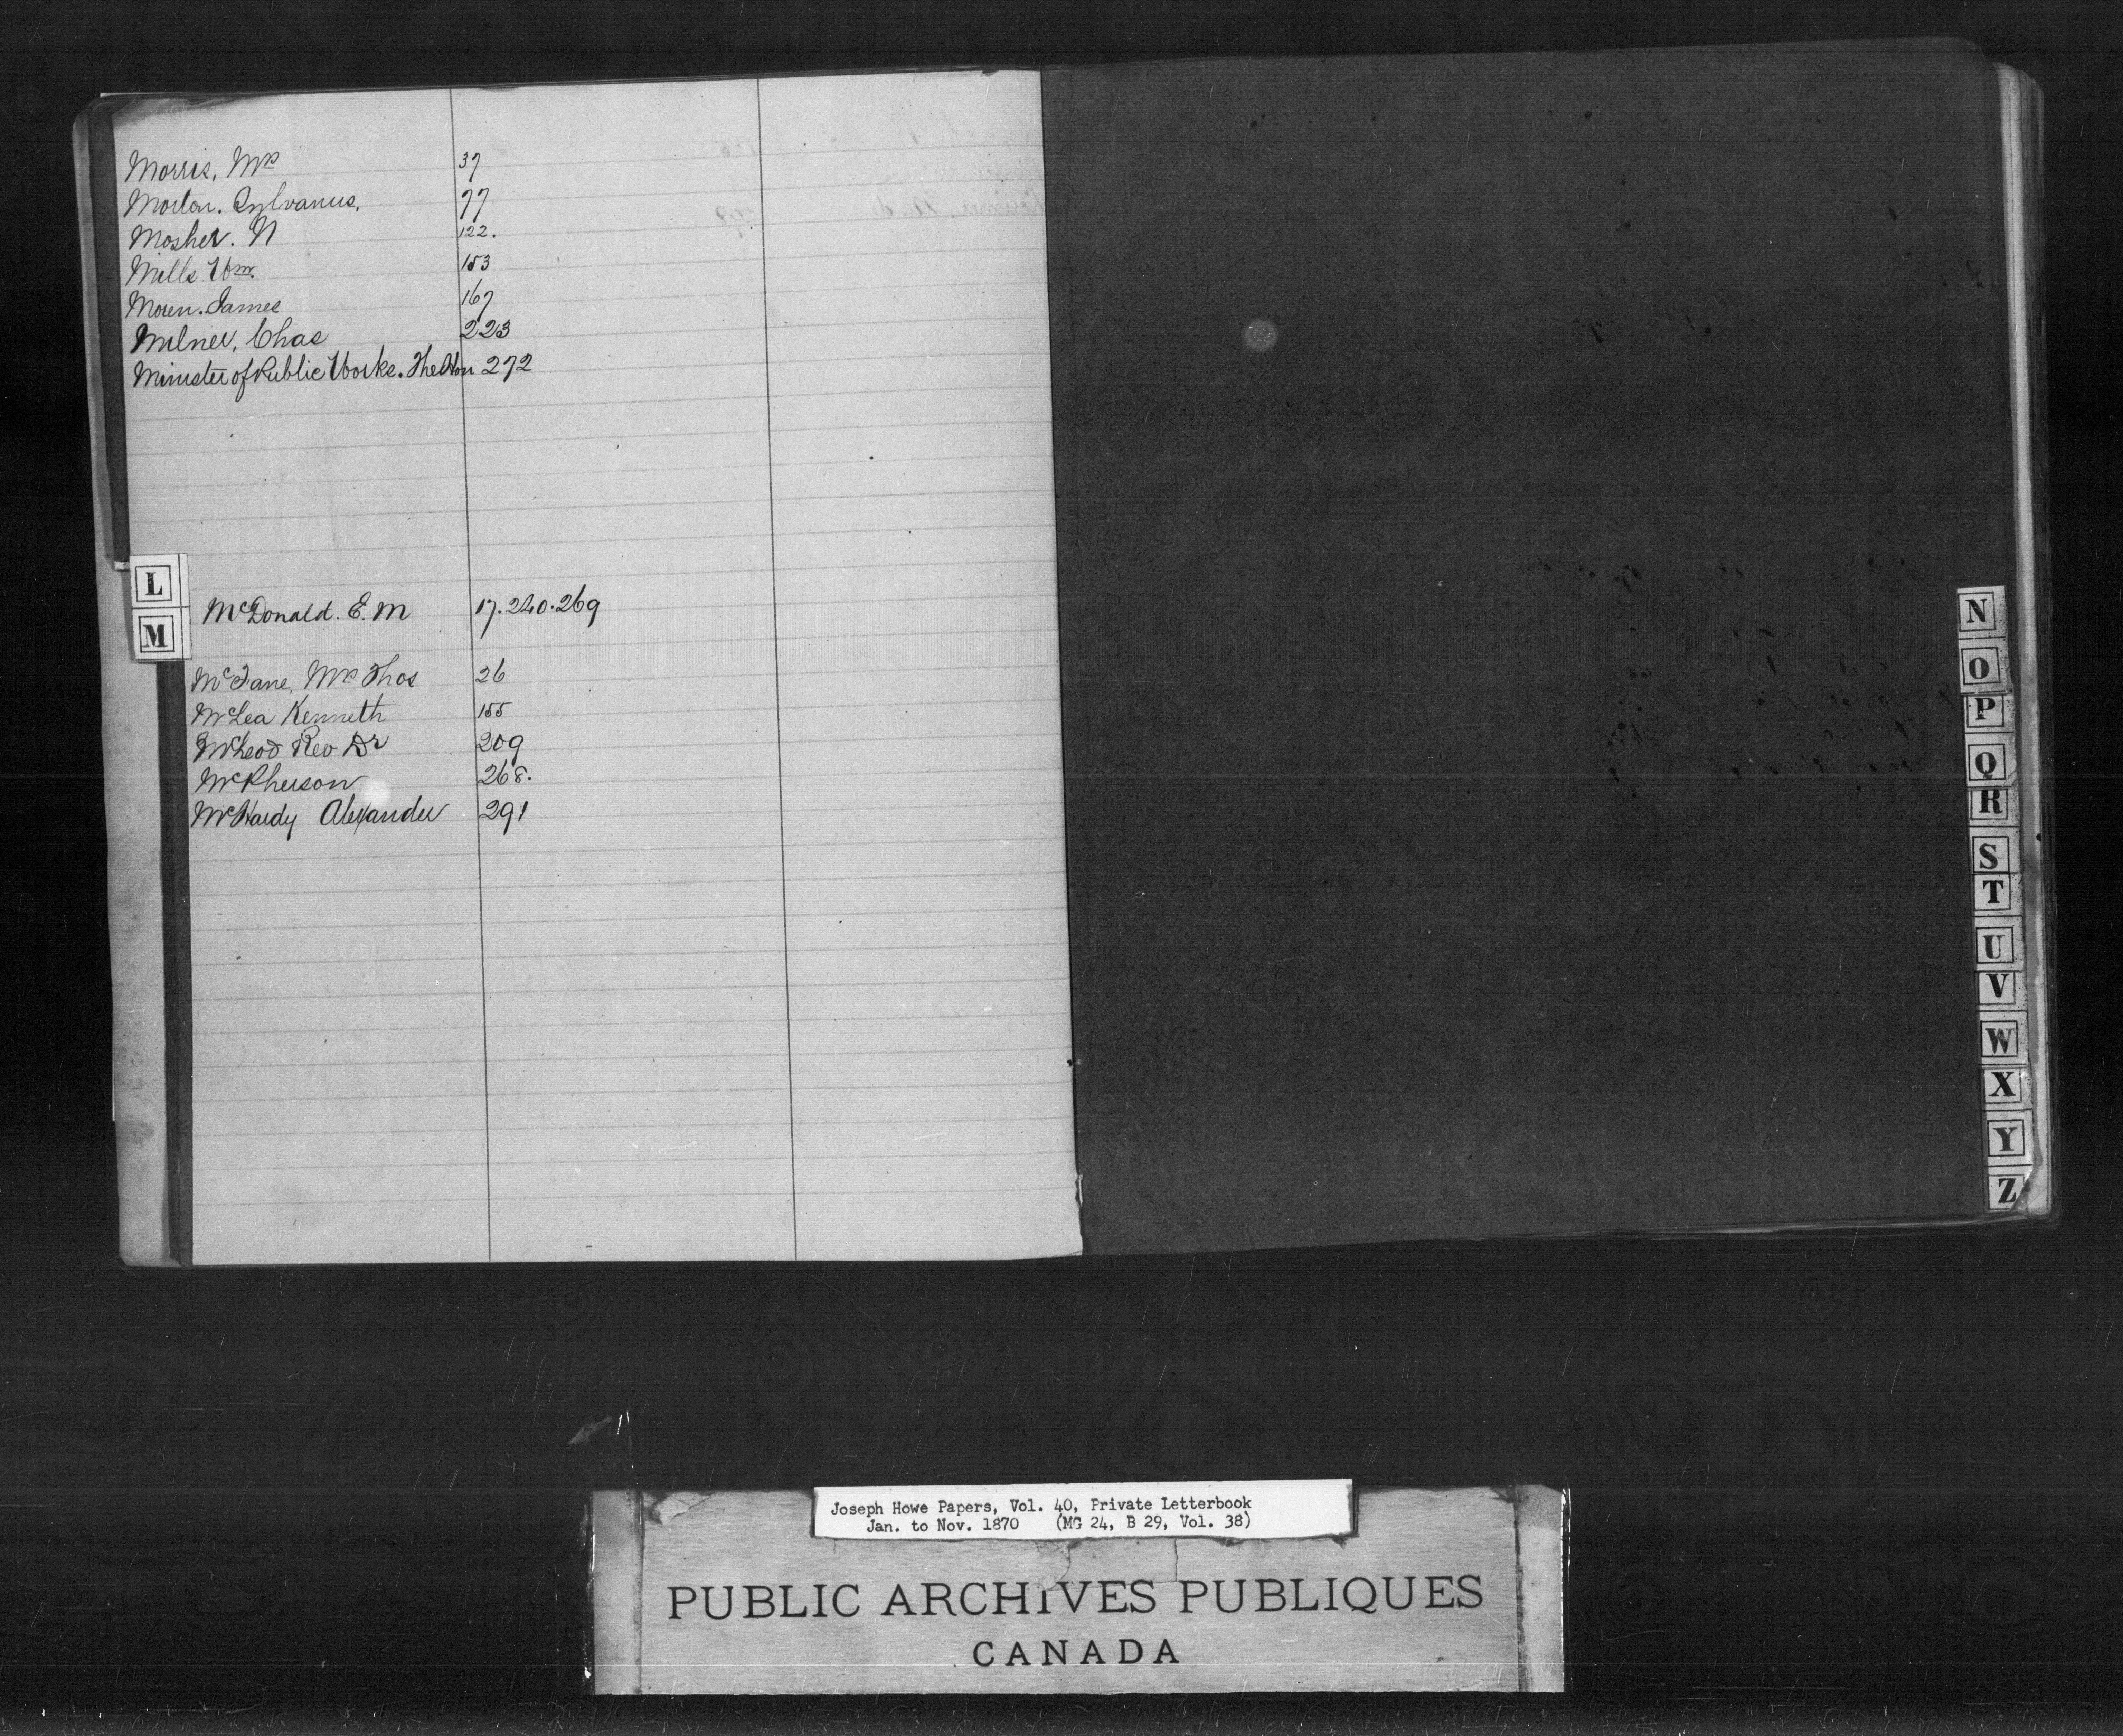 Morris, Mrs 37
Morton. Sylvanus, 77
Mosher. N 122.
Mills Wm. 153
Moren. James 167
Milner, Chas 223
Minister of Public Works. The Hon 272
L
M
McDonald. E. M 17. 240. 269
Mrs Thos 26
McLea Kenneth 155
McLeod Rev Dr 209
McPherson 268.
McHardy Alexander 291
N
O
P
Q
R
S
T
U
V
W
X
Y
Z
Joseph Howe Papers, Vol. 40, Private Letterbook
Jan. to Nov. 1870 (MG 24, B 29, Vol. 38)
PUBLIC ARCHIVES PUBLIQUES
CANADA